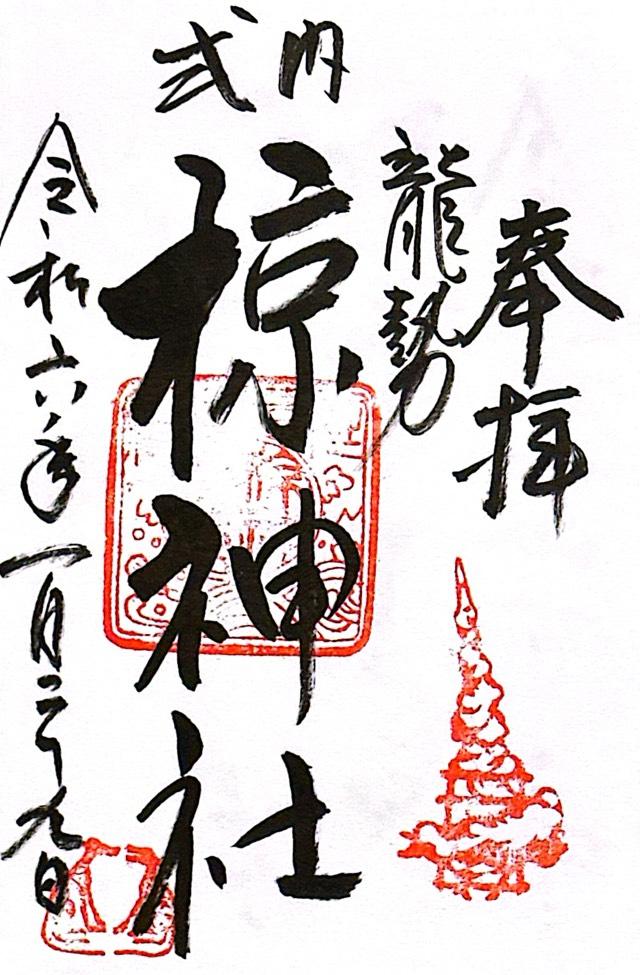 奉拝
龍勢
式内
椋神社
令和六年一月二十九日